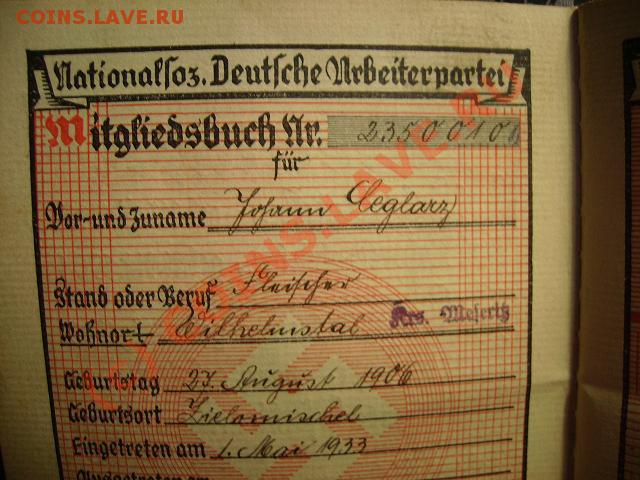 COINS.LAVE.RU
Nationalsoz. Deutsche Arbeiterpartei
Mitgliedsbuch Nr. 2350010
für
Vor- und Zuname Johann Ceglarz
Stand oder Beruf Fleischer
Wohnort Wilhelmstal Krs. Meseritz
Geburtstag 27. August 1906
Geburtsort
Eingetreten am 1. Mai 1933
COINS.LAVE.RU